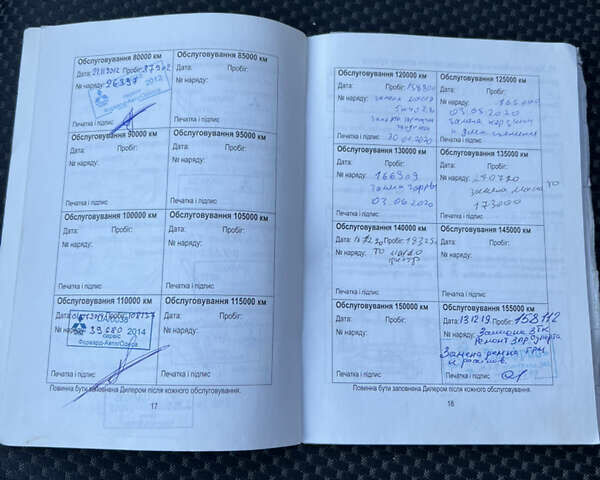 Обслуговування 80000 км
Дата: 21.11.2012 Пробіг: 87942
№ наряду: 26397
2012
Печатка і підпис
Обслуговування 85000 км
Дата: Пробіг:
№ наряду:
Печатка і підпис
Обслуговування 90000 км
Дата: Пробіг:
№ наряду:
Печатка і підпис
Обслуговування 95000 км
Дата: Пробіг:
№ наряду:
Печатка і підпис
Обслуговування 100000 км
Дата: Пробіг:
№ наряду:
Печатка і підпис
Обслуговування 105000 км
Дата: Пробіг:
№ наряду:
Печатка і підпис
Обслуговування 110000 км
Дата: Пробіг:
39680 2014
сервис
Форвард-Авто/Одеса
Печатка і підпис
Обслуговування 115000 км
Дата: Пробіг:
№ наряду:
Печатка і підпис
Повинна бути заповнена Дилером після кожного обслуговування.
17
Обслуговування 120000 км
Дата: Пробіг: 158800
№ наряду: замена
Печатка і підпис 20.01.2020
Обслуговування 125000 км
Дата: Пробіг:
№ наряду: 165000
03.05.2020
замена
Печатка і підпис
Обслуговування 130000 км
Дата: Пробіг:
№ наряду: 166909
замена
03.06.2020
Печатка і підпис
Обслуговування 135000 км
Дата: Пробіг:
№ наряду: 240720
замена масла
173000
Печатка і підпис
Обслуговування 140000 км
Дата: Пробіг:
№ наряду: ТО
Печатка і підпис
Обслуговування 145000 км
Дата: Пробіг:
№ наряду:
Печатка і підпис
Обслуговування 150000 км
Дата: Пробіг:
№ наряду:
Печатка і підпис
Обслуговування 155000 км
Дата: 19.12.19 Пробіг: 158112
№ наряду:
Ремонт
Замена ремня ГРМ
и роликов.
Печатка і підпис
Повинна бути заповнена Дилером після кожного обслуговування.
18